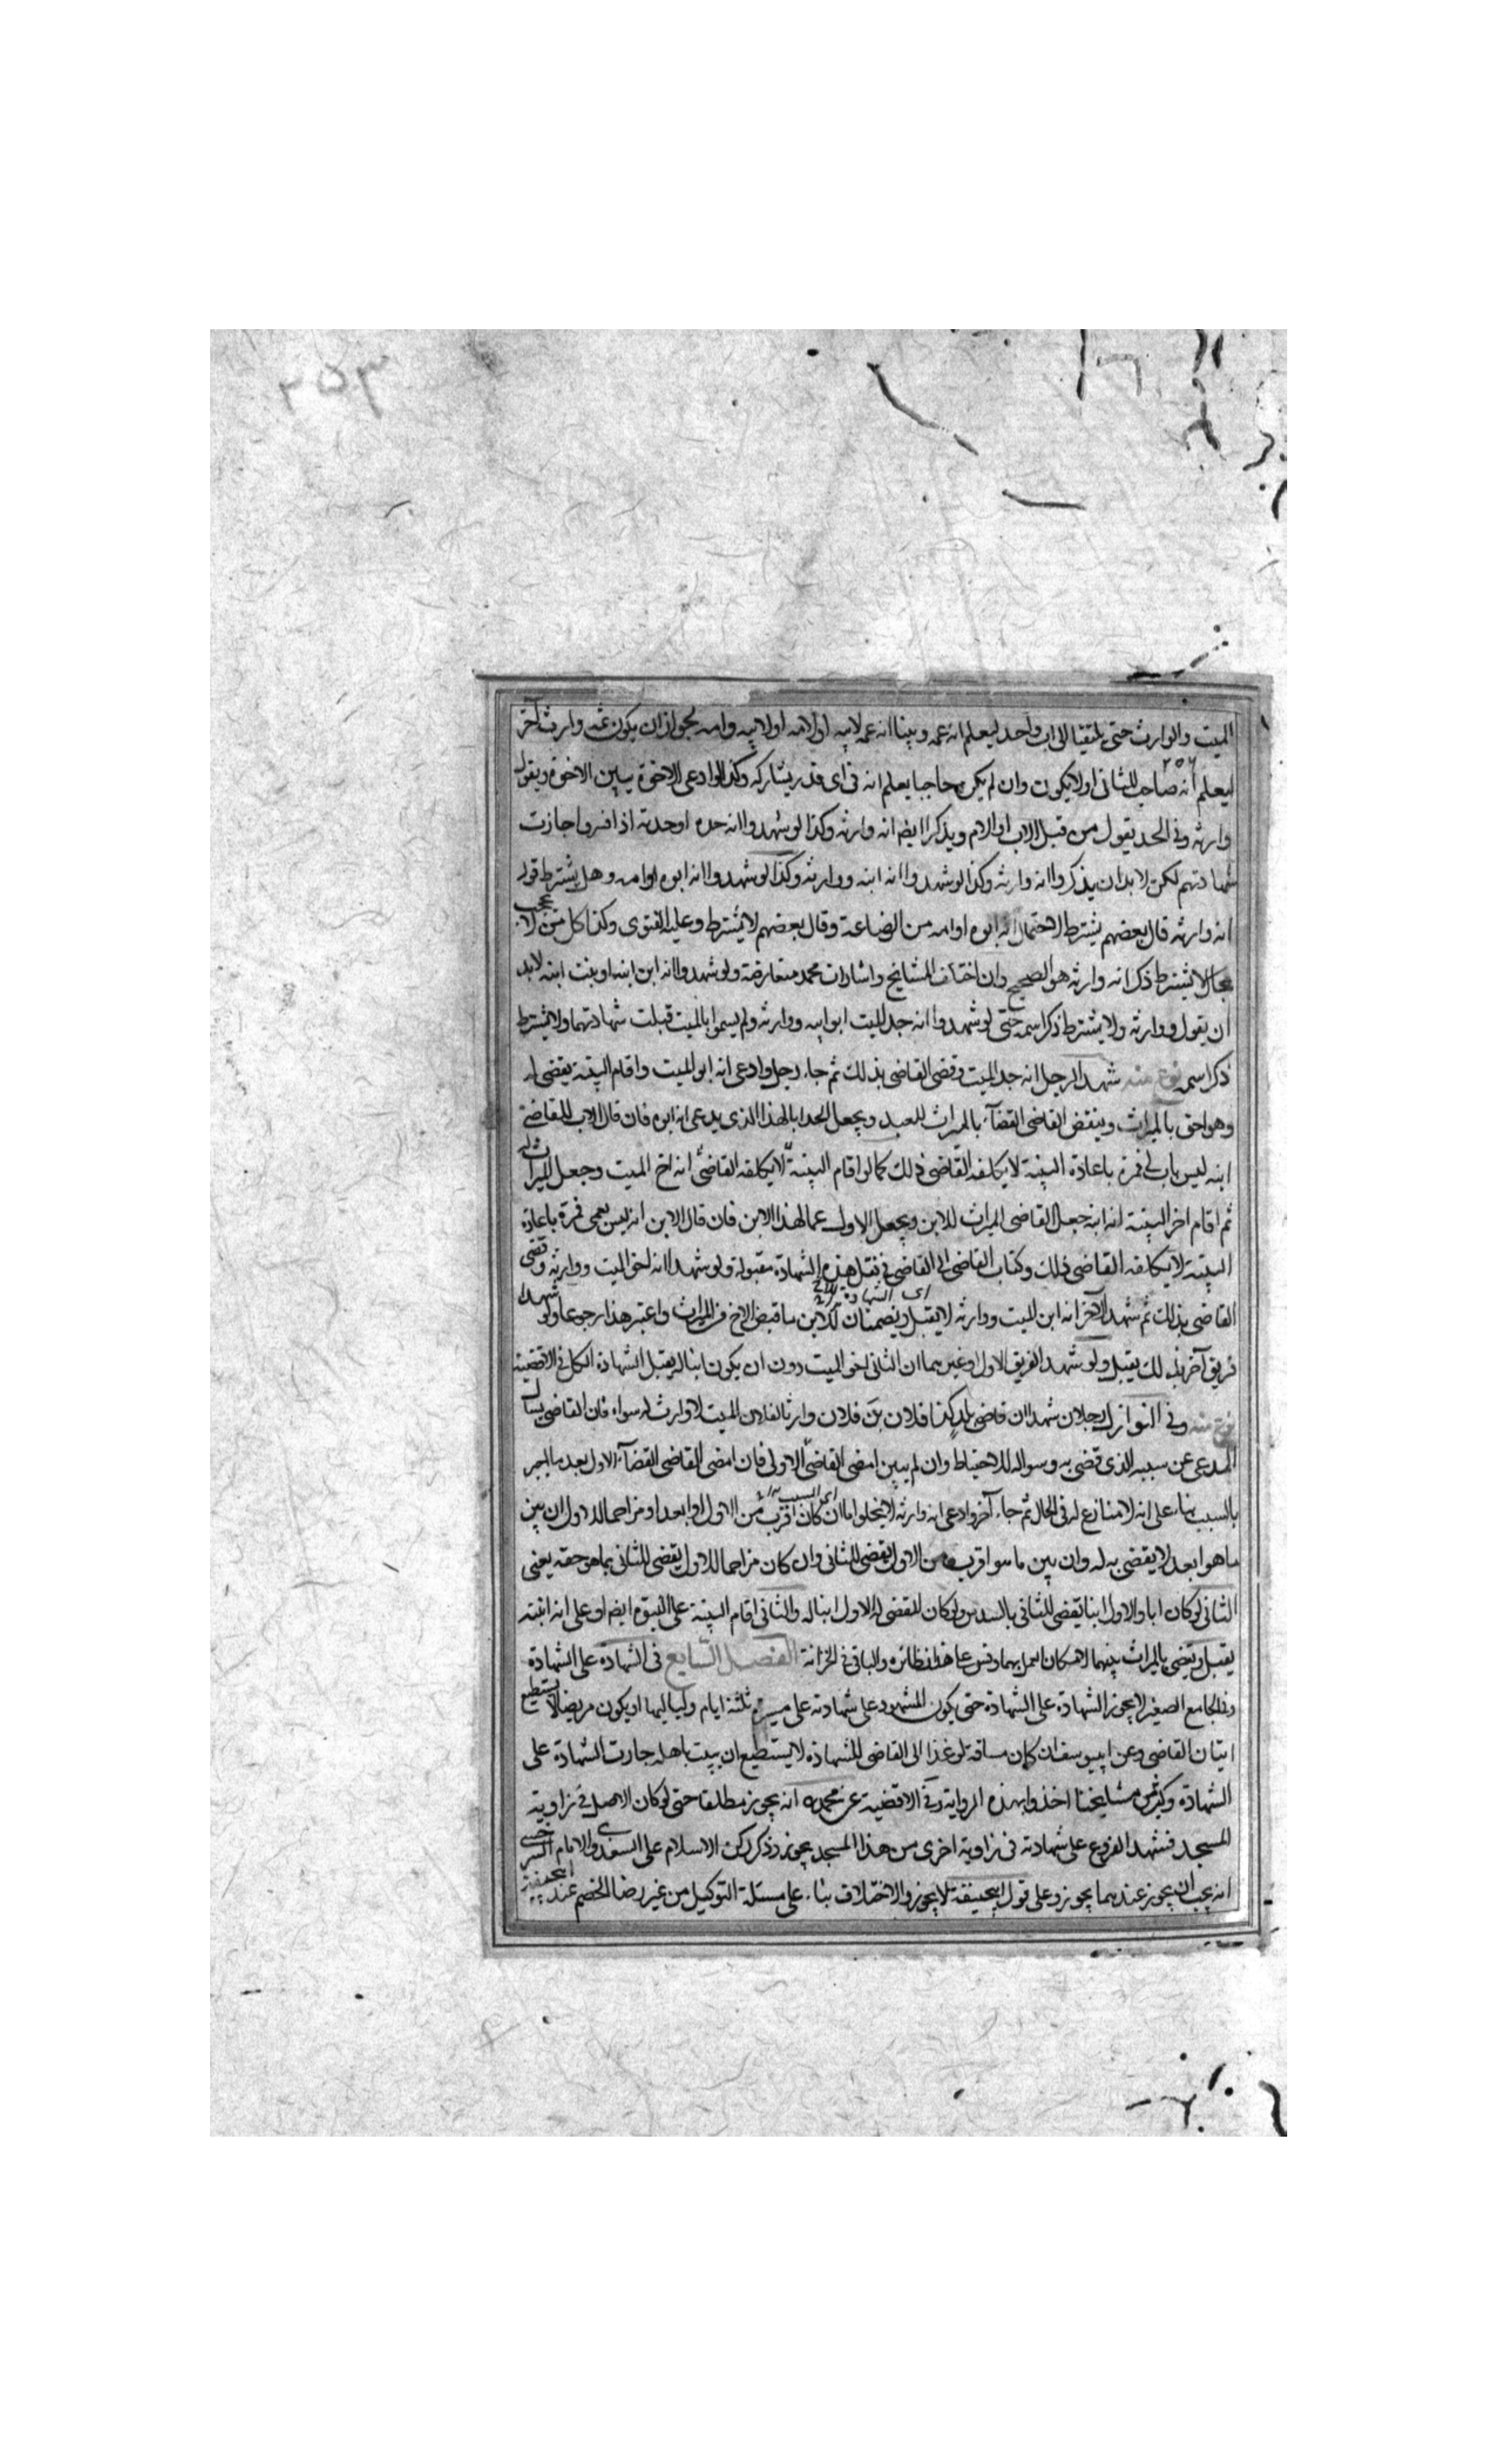 ٢٥٣
الميت والوارث حتى يلتقيا الى اب واحد ليعلم انه عمه وبينا انه عمه لابيه او لامه او لابيه وامه لجواز ان يكون ثمه وارث آخر
٢٥٦
ليعلم انه صاحب للثانى او لا يكون وان لم يكن حاجبا يعلم انه فى اى قدر يشاركه وكذا لو ادعى الاخوة يبين الاخوة ويقول
وارثه وفى الجد يقول من قبل الاب او الام ويذكر ايضا انه وارثه وكذا لو شهدوا انه جده او جدته اذا فسروا جازت
شهادتهم لكن لا بد ان يذكروا انه وارثه وكذا لو شهدوا انه ابنه ووارثه وكذا لو شهدوا انه ابوه او امه وهل يشترط قوله
انه وارثه قال بعضهم يشترط لاحتمال انه ابوه او امه من الرضاعة وقال بعضهم لا يشترط وعليه الفتوى وكذا كل من لا يحجب
بحال لا يشترط ذكر انه وارثه هو الصحيح وان اختلف المشايخ واشارات محمد متعارضة ولو شهدوا انه ابن ابنه او بنت ابنه لابد
ان يقول ووارثه ولا يشترط ذكر اسمه حتى لو شهدوا انه جد الميت ابو ابيه ووارثه ولم يسموا بالميت قبلت شهادتهما ولا يشترط
ذكر اسمه نوع منه شهدا لرجل انه جد الميت وقضى القاضى بذلك ثم جاء رجل وادعى انه ابو الميت واقام البينة يقضى له
وهو احق بالميراث وينقض القاضى القضاء بالميراث للعبد ويجعل الجد ابا لهذا الذى يدعى انه ابوه فان قال الاب للقاضى
انه ليس باب لى فمره باعادة البينة لا يكلفه القاضى ذلك كما لو اقام البينة لا يكلفه القاضى انه اخ الميت وجعل الميراث له
ثم اقام اخر البينة انه ابنه جعل القاضى الميراث للابن ويجعل الاول عما لهذا الابن فان قال الابن انه ليس بعمى فمره باعادة
البينة لا يكلفه القاضى ذلك وكتاب القاضى الى القاضى فى نقل هذه الشهادة مقبولة ولو شهدا انه اخو الميت ووارثه وقضى
اى الشهادة
القاضى بذلك ثم شهدا لآخر انه ابن الميت ووارثه لا يقبل ويضمنان للابن ما قبض الاخ من الميراث واعتبر هذا رجوعا ولو شهدا
فريق آخر بذلك يقبل ولو شهد الفريق الاول او غيرهما ان الثانى اخو الميت دون ان يكون ابنا له يقبل الشهادة الكل فى الاقضية
نوع منه وفى النوازل رجلان شهدا ان قاضى بلد كذا فلان بن فلان وارثا لفلان الميت لا وارث له سواه فان القاضى يسأل
المدعى عن سببه الذى قضى به وسواله للاحتياط وان لم يبين امضى القاضى الاول فان امضى القاضى القضاء الاول بعد ما لم يجر
اى السبب
بالسبب بناء على انه لا منازع له فى الحال ثم جاء آخر وادعى انه وارثه لا يخلو اما ان كان اقرب من الاول او ابعد او مزاحما للاول ان بين
ما هو ابعد لا يقضى به له وان بين ما هو اقرب من الاول يقضى للثانى وان كان مزاحما للاول يقضى للثانى بما هو حقه يعنى
الثانى لو كان ابا والاول ابنا يقضى للثانى بالسدس ولو كان المقضى له الاول ابنا له والثانى اقام البينة على البنوة ايضا او على انه ابنته
يقبل ويقضى بالميراث بينهما لامكان العمل بهما وقس على هذا نظائره والباقى فى الخزانة الفصل السابع فى الشهادة على الشهادة
وفى الجامع الصغير لا يجوز الشهادة على الشهادة حتى يكون المشهود على شهادته على مسيرة ثلثة ايام ولياليها او يكون مريضا لا يستطيع
اتيان القاضى وعن ابيوسف ان كان مسافة لو غدا الى القاضى للشهادة لا يستطيع ان يبيت باهله جازت الشهادة على
الشهادة وكثير من مشايخنا اخذوا بهذه الرواية وفى الاقضية عن محمد رح انه يجوز مطلقا حتى لو كان الاصل فى زاوية
المسجد فشهد الفروع على شهادته فى زاوية اخرى من هذا المسجد يجوز وذكر ركن الاسلام على السغدى والامام السرخسى
انه يجب ان يجوز عندهما يجوز وعلى قول ابيحنيفة لا يجوز والاختلاف بناء على مسئلة التوكيل من غير رضا الخصم عند ابيحنيفة